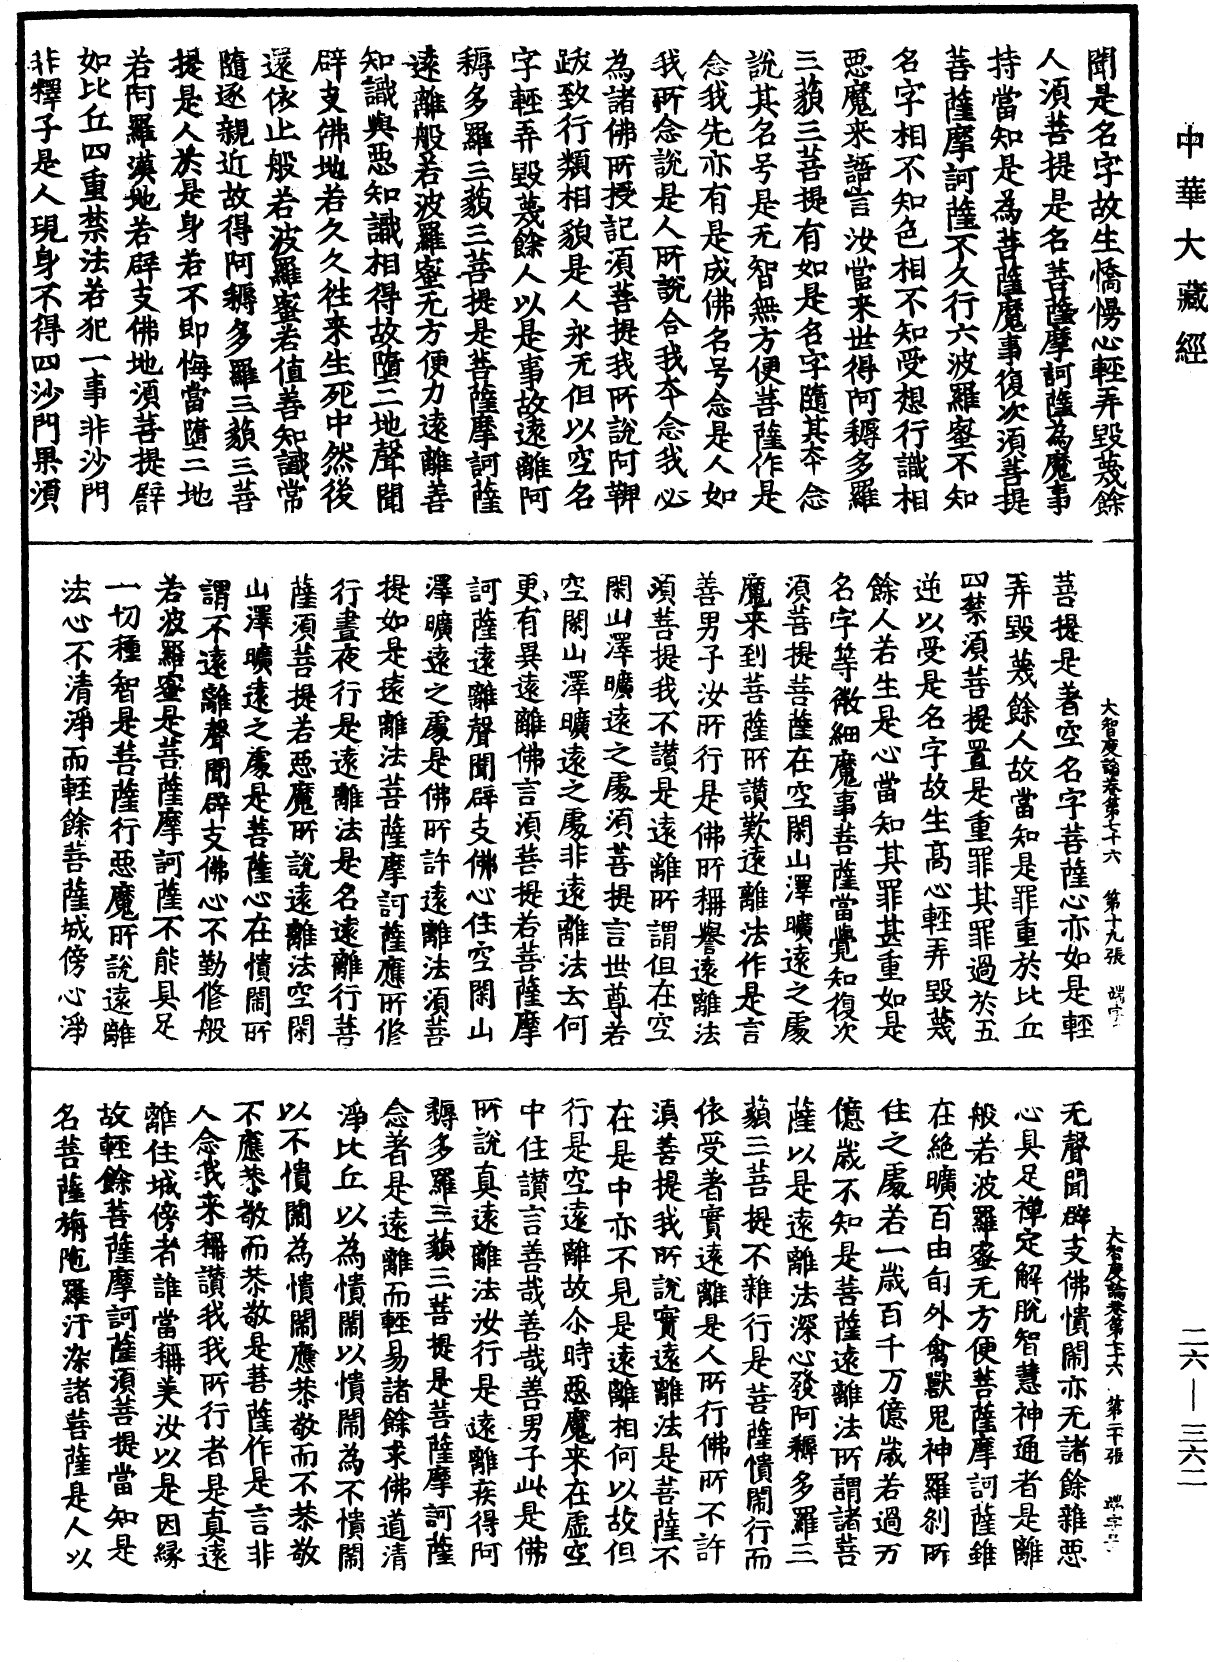 中華大藏經
聞是名字故生憍慢心輕弄毀蔑餘
人須菩提是名菩薩摩訶薩為魔事
持當知是為菩薩魔事復次須菩提
菩薩摩訶薩不久行六波羅蜜不知
名字相不知色相不知受想行識相
惡魔来語言汝當来世得阿耨多羅
三藐三菩提有如是名字隨其夲念
說其名号是无智無方便菩薩作是
念我先亦有是成佛名号念是人如
我所念說是人所說合我夲念我必
為諸佛所授記須菩提我所說阿鞞
跋致行類相貌是人永无但以空名
字輕弄毀蔑餘人以是事故遠離阿
耨多羅三藐三菩提是菩薩摩訶薩
遠離般若波羅蜜无方便力遠離善
知識與惡知識相得故隨二地聲聞
辟支佛地若久久往来生死中然後
還依止般若波羅蜜若值善知識常
隨逐親近故得阿耨多羅三藐三菩
提是人於是身若不即悔當墮二地
若阿羅漢地若辟支佛地須菩提辟
如比丘四重禁法若犯一事非沙門
非釋子是人現身不得四沙門果須
大智度論卷第七十六　第十九張　端字
菩提是著空名字菩薩心亦如是輕
弄毀蔑餘人故當知是罪重於比丘
四禁須菩提置是重罪其罪過於五
逆以受是名字故生高心輕弄毀蔑
餘人若生是心當知其罪甚重如是
名字等微細魔事菩薩當覺知復次
須菩提菩薩在空閑山澤曠遠之處
魔来到菩薩所讚歎遠離法作是言
善男子汝所行是佛所稱譽遠離法
須菩提我不讚是遠離所謂但在空
閑山澤曠遠之處須菩提言世尊若
空閑山澤曠遠之處非遠離法去何
更有異遠離佛言須菩提若菩薩摩
訶薩遠離聲聞辟支佛心住空閑山
澤曠遠之處是佛所許遠離法須菩
提如是遠離法菩薩摩訶薩應所修
行晝夜行是遠離法是名遠離行菩
薩須菩提若惡魔所說遠離法空閑
山澤曠遠之處是菩薩心在憒閙所
謂不遠離聲聞辟支佛心不勤修般
若波羅蜜是菩薩摩訶薩不能具足
一切種智是菩薩行惡魔所說遠離
法心不清淨而輕餘菩薩城傍心淨
大智度論卷第七十六　第二十張　端字
无聲聞辟支佛憒閙亦无諸餘雜惡
心具足禪定解脫智慧神通者是離
般若波羅蜜无方便菩薩摩訶薩雖
在絕曠百由旬外禽獸鬼神羅刹所
住之處若一歲百千万億歲若過万
億歲不知是菩薩遠離法所謂諸菩
薩以是遠離法深心發阿耨多羅三
藐三菩提不雜行是菩薩憒閙行而
依受著實遠離是人所行佛所不許
須菩提我所說實遠離法是菩薩不
在是中亦不見是遠離相何以故但
行是空遠離故尒時惡魔来在虛空
中住讚言善哉善哉善男子此是佛
所說真遠離法汝行是遠離疾得阿
耨多羅三藐三菩提是菩薩摩訶薩
念著是遠離而輕易諸餘求佛道清
淨比丘以為憒閙以憒閙為不憒閙
以不憒閙為憒閙應恭敬而不恭敬
不應恭敬而恭敬是菩薩作是言非
人念我来稱讚我我所行者是真遠
離住城傍者誰當稱美汝以是因緣
故輕餘菩薩摩訶薩須菩提當知是
名菩薩旃陁羅汙染諸菩薩是人以
二六—三六二